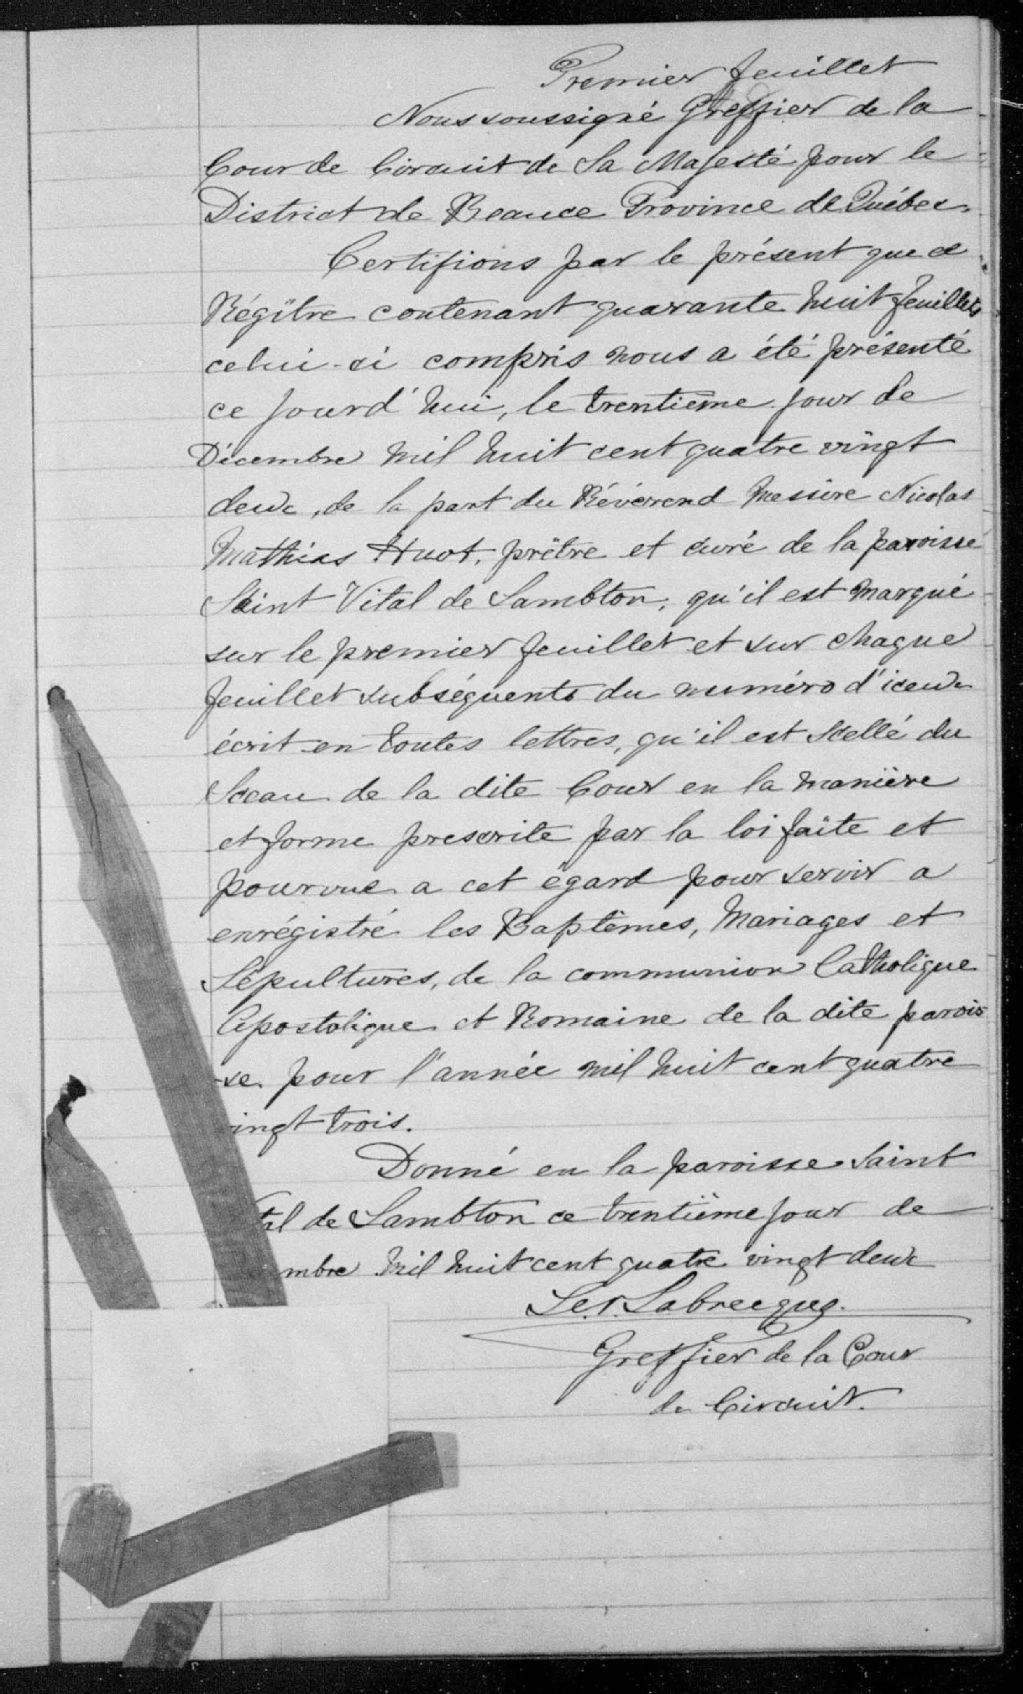 Premier feuillet
Nous soussigné Greffier de la
Cour de Circuit de Sa Majesté pour le
District de Beauce Province de Québec.
Certifions par le présent que ce
Régître contenant quarante huit feuillets
celui-ci compris nous a été présenté
ce jourd'hui, le trentième jour de
Décembre mil huit cent quatre vingt
deux, de la part du Révérend Messire Nicolas
Mathias Huot, prêtre et curé de la paroisse
Saint Vital de Lambton, qu'il est marqué
sur le premier feuillet et sur chaque
feuillet subséquents du numéro d'iceux
écrit en toutes lettres, qu'il est scellé du
Sceau de la dite Cour en la manière
et forme prescrite par la loi faite et
pourvue a cet égard pour servir a
enrégistré les Baptêmes, Mariages et
Sépultures, de la communion Catholique
Apostolique et Romaine de la dite parois
-se pour l'année mil huit cent quatre
vingt trois.
Donné en la paroisse Saint
tal de Lambton ce trentième jour de
mbre mil huit cent quatre vingt deux
Labrecque.
Greffier de la Cour
de Circuit.